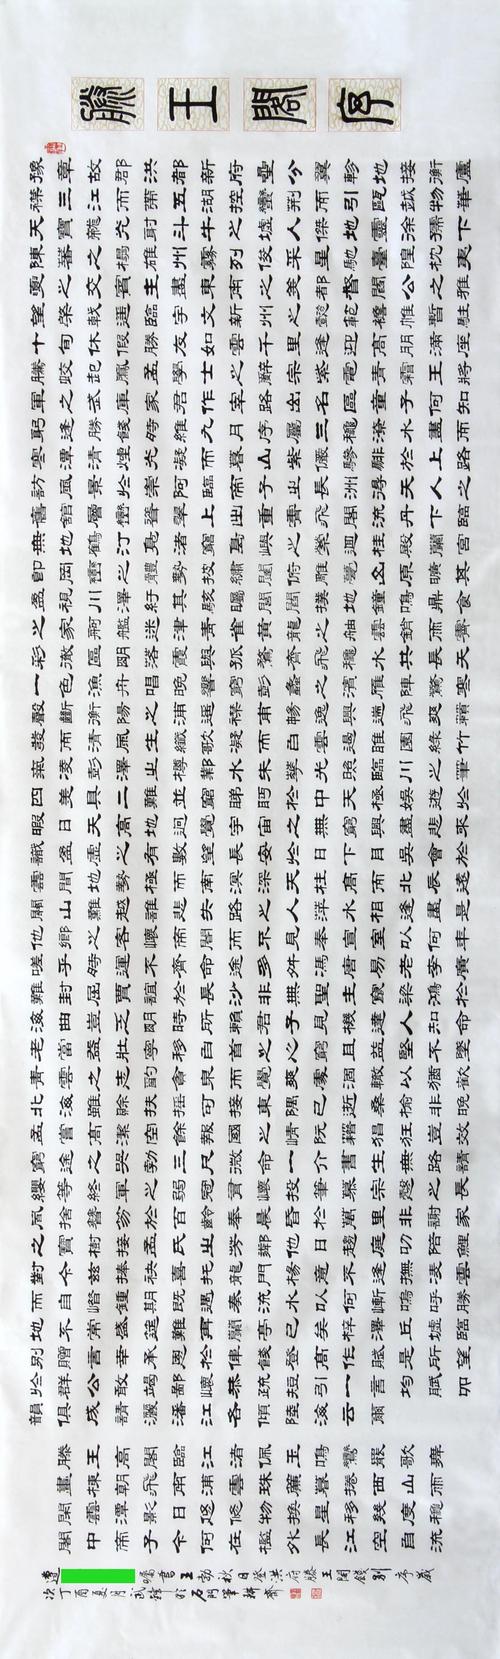 滕王閣序
豫章故郡洪都新府星分翼軫地接衡廬
襟三江而帶五湖控蠻荊而引甌越物華
天寶龍光射牛斗之墟人傑地靈徐孺下
陳蕃之榻雄州霧列俊采星馳臺隍枕夷
夏之交賓主盡東南之美都督閻公之雅
望棨戟遙臨宇文新州之懿範襜帷暫駐
十旬休假勝友如雲千里逢迎高朋滿座
騰蛟起鳳孟學士之詞宗紫電青霜王將
軍之武庫家君作宰路出名區童子何知
躬逢勝餞時維九月序屬三秋潦水盡而
寒潭清煙光凝而暮山紫儼驂騑於上路
訪風景於崇阿臨帝子之長洲得天人之
舊館層巒聳翠上出重霄飛閣流丹下臨
無地鶴汀鳧渚窮島嶼之縈迴桂殿蘭宮
即岡巒之體勢披繡闥俯雕甍山原曠其
盈視川澤紆其駭矚閭閻撲地鐘鳴鼎食
之家舸艦迷津青雀黃龍之舳雲銷雨霽
彩徹區明落霞與孤鶩齊飛秋水共長天
一色漁舟唱晚響窮彭蠡之濱雁陣驚寒
聲斷衡陽之浦遙襟甫暢逸興遄飛爽籟
發而清風生纖歌凝而白雲遏睢園綠竹
氣凌彭澤之樽鄴水朱華光照臨川之筆
四美具二難並窮睇眄於中天極娛遊於
暇日天高地迥覺宇宙之無窮興盡悲來
識盈虛之有數望長安於日下目吳會於
雲間地勢極而南溟深天柱高而北辰遠
關山難越誰悲失路之人萍水相逢盡是
他鄉之客懷帝閽而不見奉宣室以何年
嗟乎時運不齊命途多舛馮唐易老李廣
難封屈賈誼於長沙非無聖主竄梁鴻於
海曲豈乏明時所賴君子見機達人知命
老當益壯寧移白首之心窮且益堅不墜
青雲之志酌貪泉而覺爽處涸轍以猶歡
北海雖賒扶搖可接東隅已逝桑榆非晚
孟嘗高潔空餘報國之情阮籍猖狂豈效
窮途之哭勃三尺微命一介書生無路請
纓等終軍之弱冠有懷投筆慕宗慤之長
風舍簪笏於百齡奉晨昏於萬里非謝家
之寶樹接孟氏之芳鄰他日趨庭叨陪鯉
對今茲捧袂喜托龍門楊意不逢撫凌雲
而自惜鍾期既遇奏流水以何慚嗚呼勝
地不常盛筵難再蘭亭已矣梓澤丘墟臨
別贈言幸承恩於偉餞登高作賦是所望
於群公敢竭鄙懷恭疏短引一言均賦四
韻俱成請灑潘江各傾陸海云爾
滕王高閣臨江渚佩玉鳴鸞罷歌舞
畫棟朝飛南浦雲珠簾暮捲西山雨
閑雲潭影日悠悠物換星移幾度秋
閣中帝子今何在檻外長江空自流
遵囑書王勃秋日登洪府滕王閣餞別序歲
次丁酉夏月武於石門筆耕齋